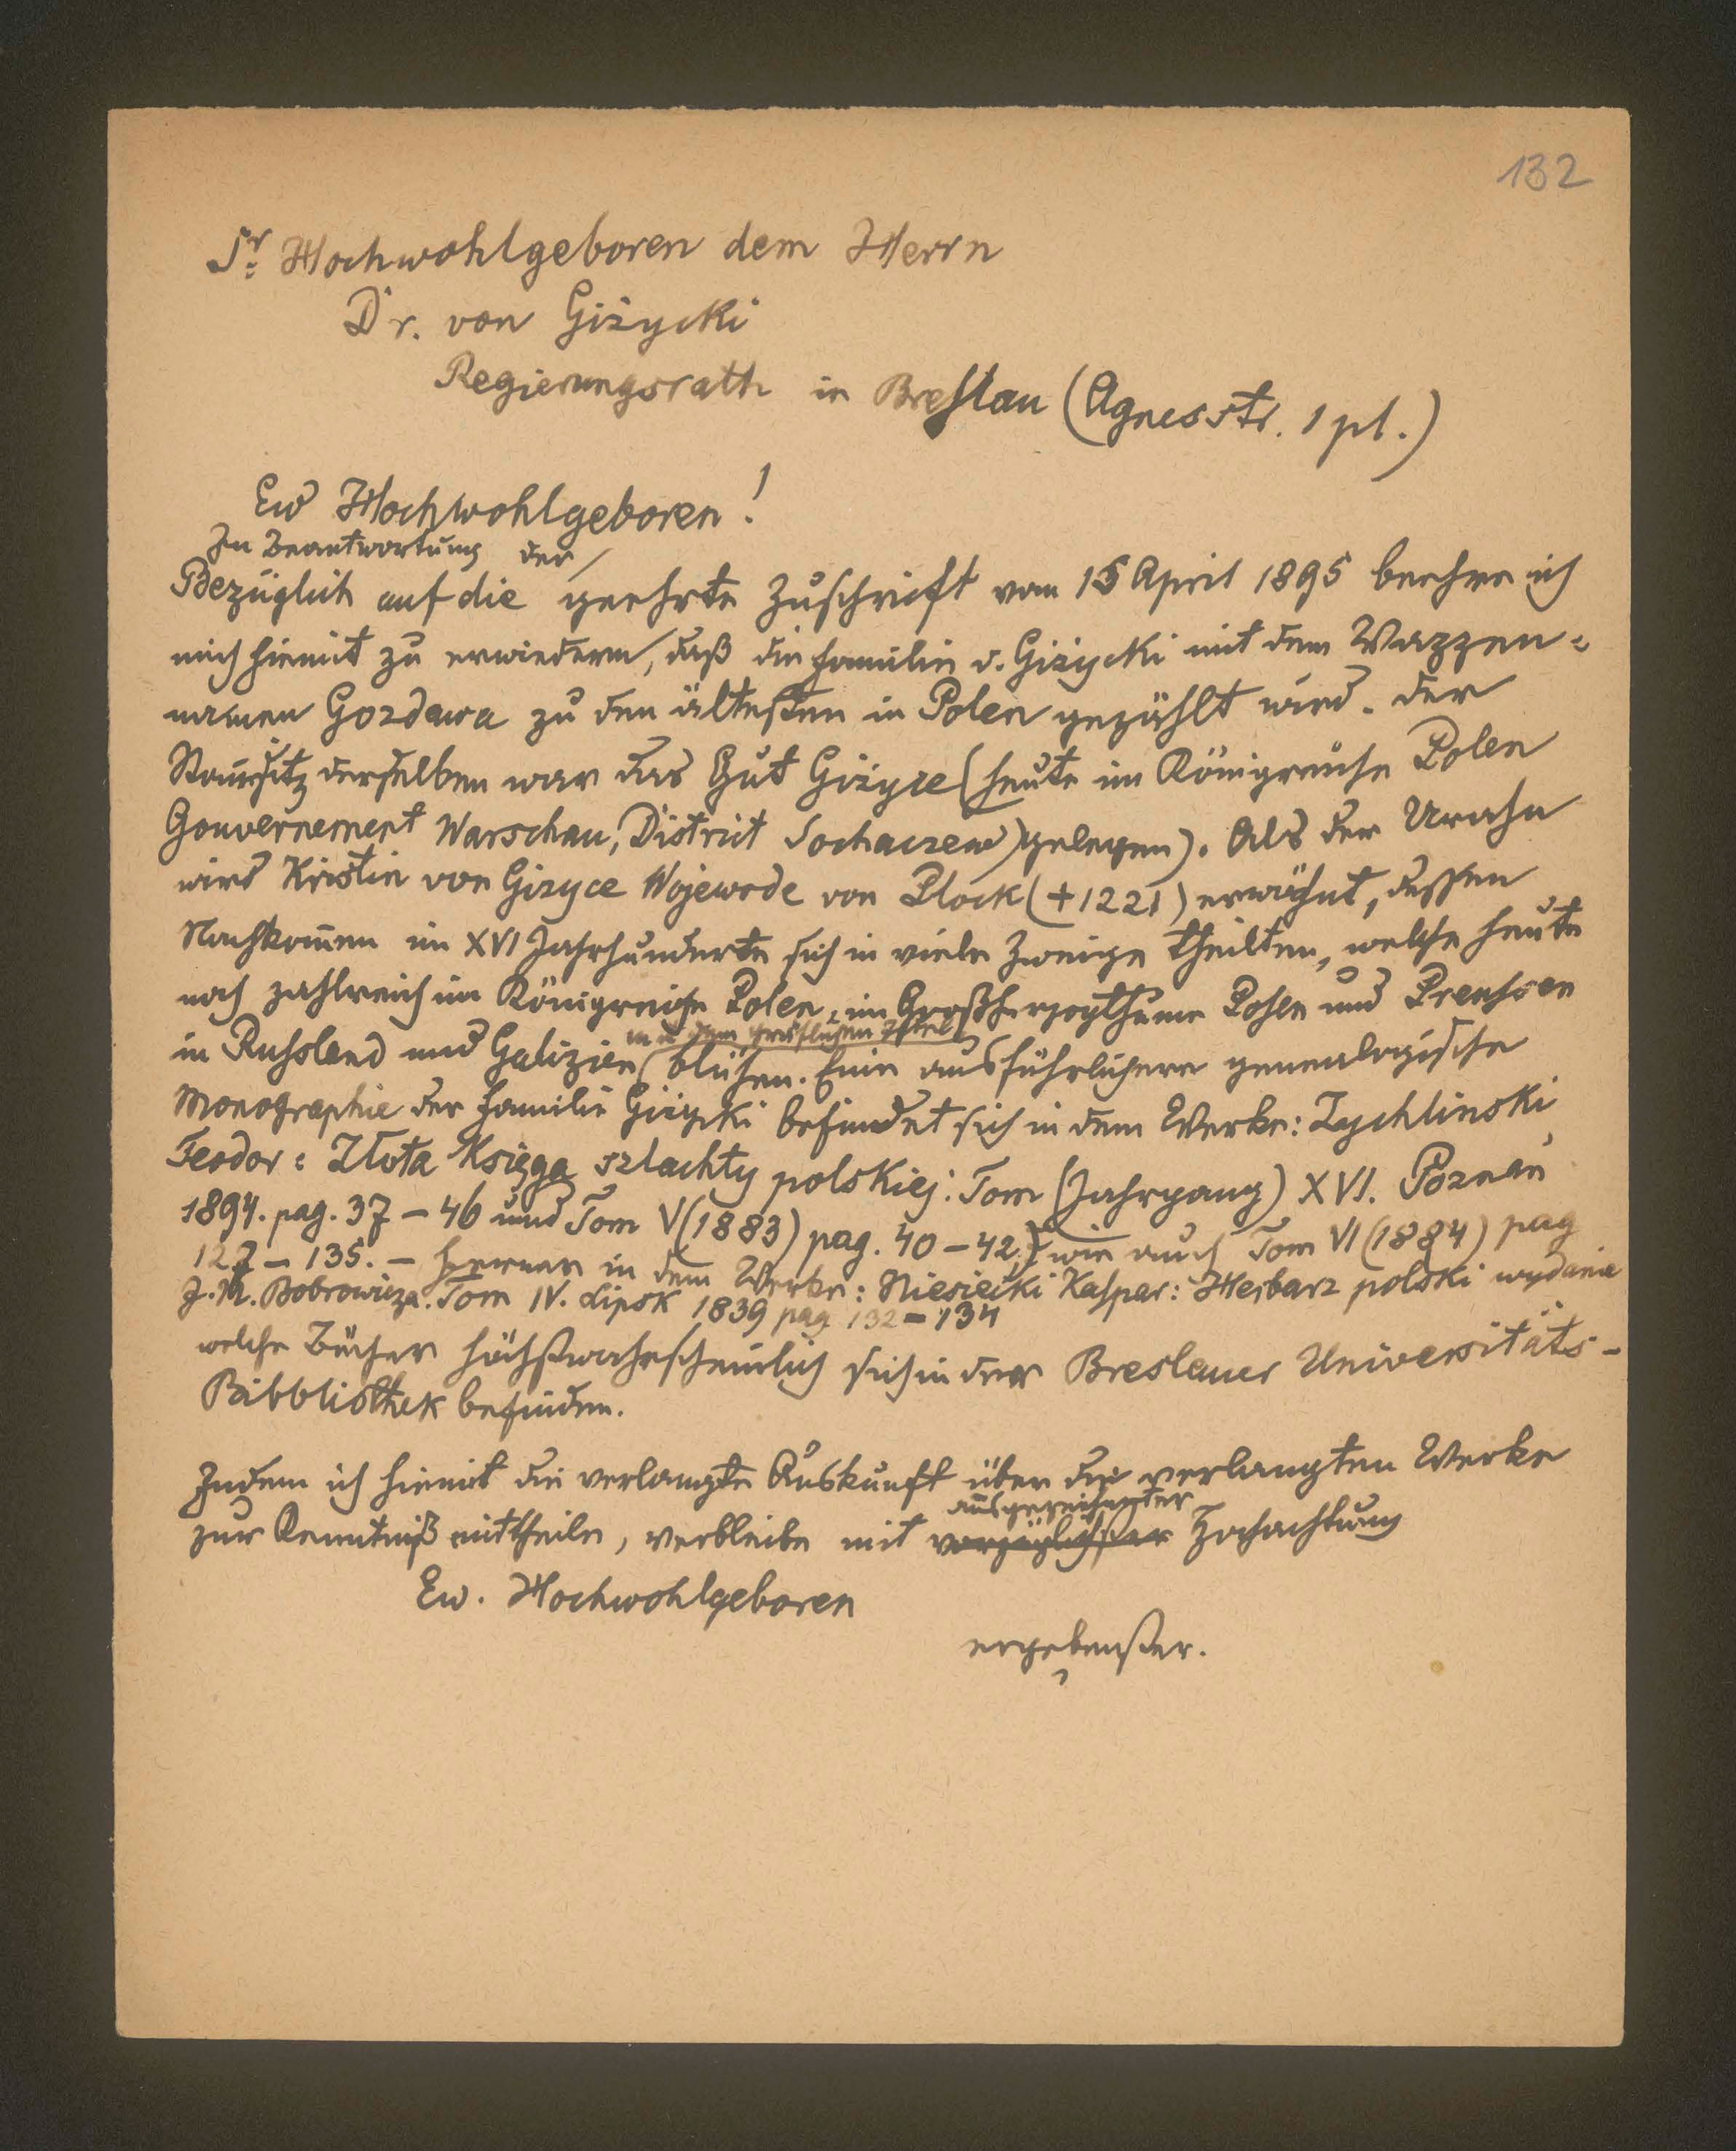 132
Sr. Hochwohlgeboren dem Herrn
Dr. von Giżycki
Regierungsrath in Breslau (Agnesstr. 1 pt.)
Ew Hochwohlgeboren!
In Beantwortung der
Bezüglich auf die geehrte Zuschrift vom 15 April 1895 beehre ich
mich hiemit zu erwiedern, daß die Familie v. Giżycki mit dem Wappen-
namen Gozdawa zu den ältesten in Polen gezählt wird. Der
Stam̄sitz derselben war das Gut Giżyce (heute im Königreiche Polen
Gouvernement Warschau, District Sochaczew) gelegen). Als der Urahn
wird Kristin von Gizyce Wojewode von Plock (+1221) erwähnt, dessen
Nachkom̄en im XVI Jahrhunderte sich in viele Zweige theilten, welche heute
noch zahlreich im Königreiche Polen, im Großherzogthume Posen und Preussen
in Russland und Galizien blühen. Eine ausführlichere genealogische
und dem gräflichen Titel
Monographie der Familie Giżycki befindet sich in dem Werke: Żychlinski
Teodor: Złota Księga szlachty polskiej: Tom (Jahrgang) XVI. Poznań
1894. pag. 37 – 46 und Tom V (1883) pag. 40 – 42,) wie auch Tom VI (1884) pag
127 – 135. – Ferner in dem Werke: Niesiecki Kasper: Herbarz polski wydanie
J. N. Bobrowicza. Tom IV. Lipsk 1839 pag 132 – 134
welche Bücher höchstwahrscheinlich sich in der Breslauer Universitäts-
Bibbliothek befinden.
Indem ich hiemit die verlangte Auskunft über die verlangten Werke
ausgezeichneter
zur Kenntniß mittheile, verbleibe mit vorzüglichster Hochachtung
Ew. Hochwohlgeboren
ergebenster.